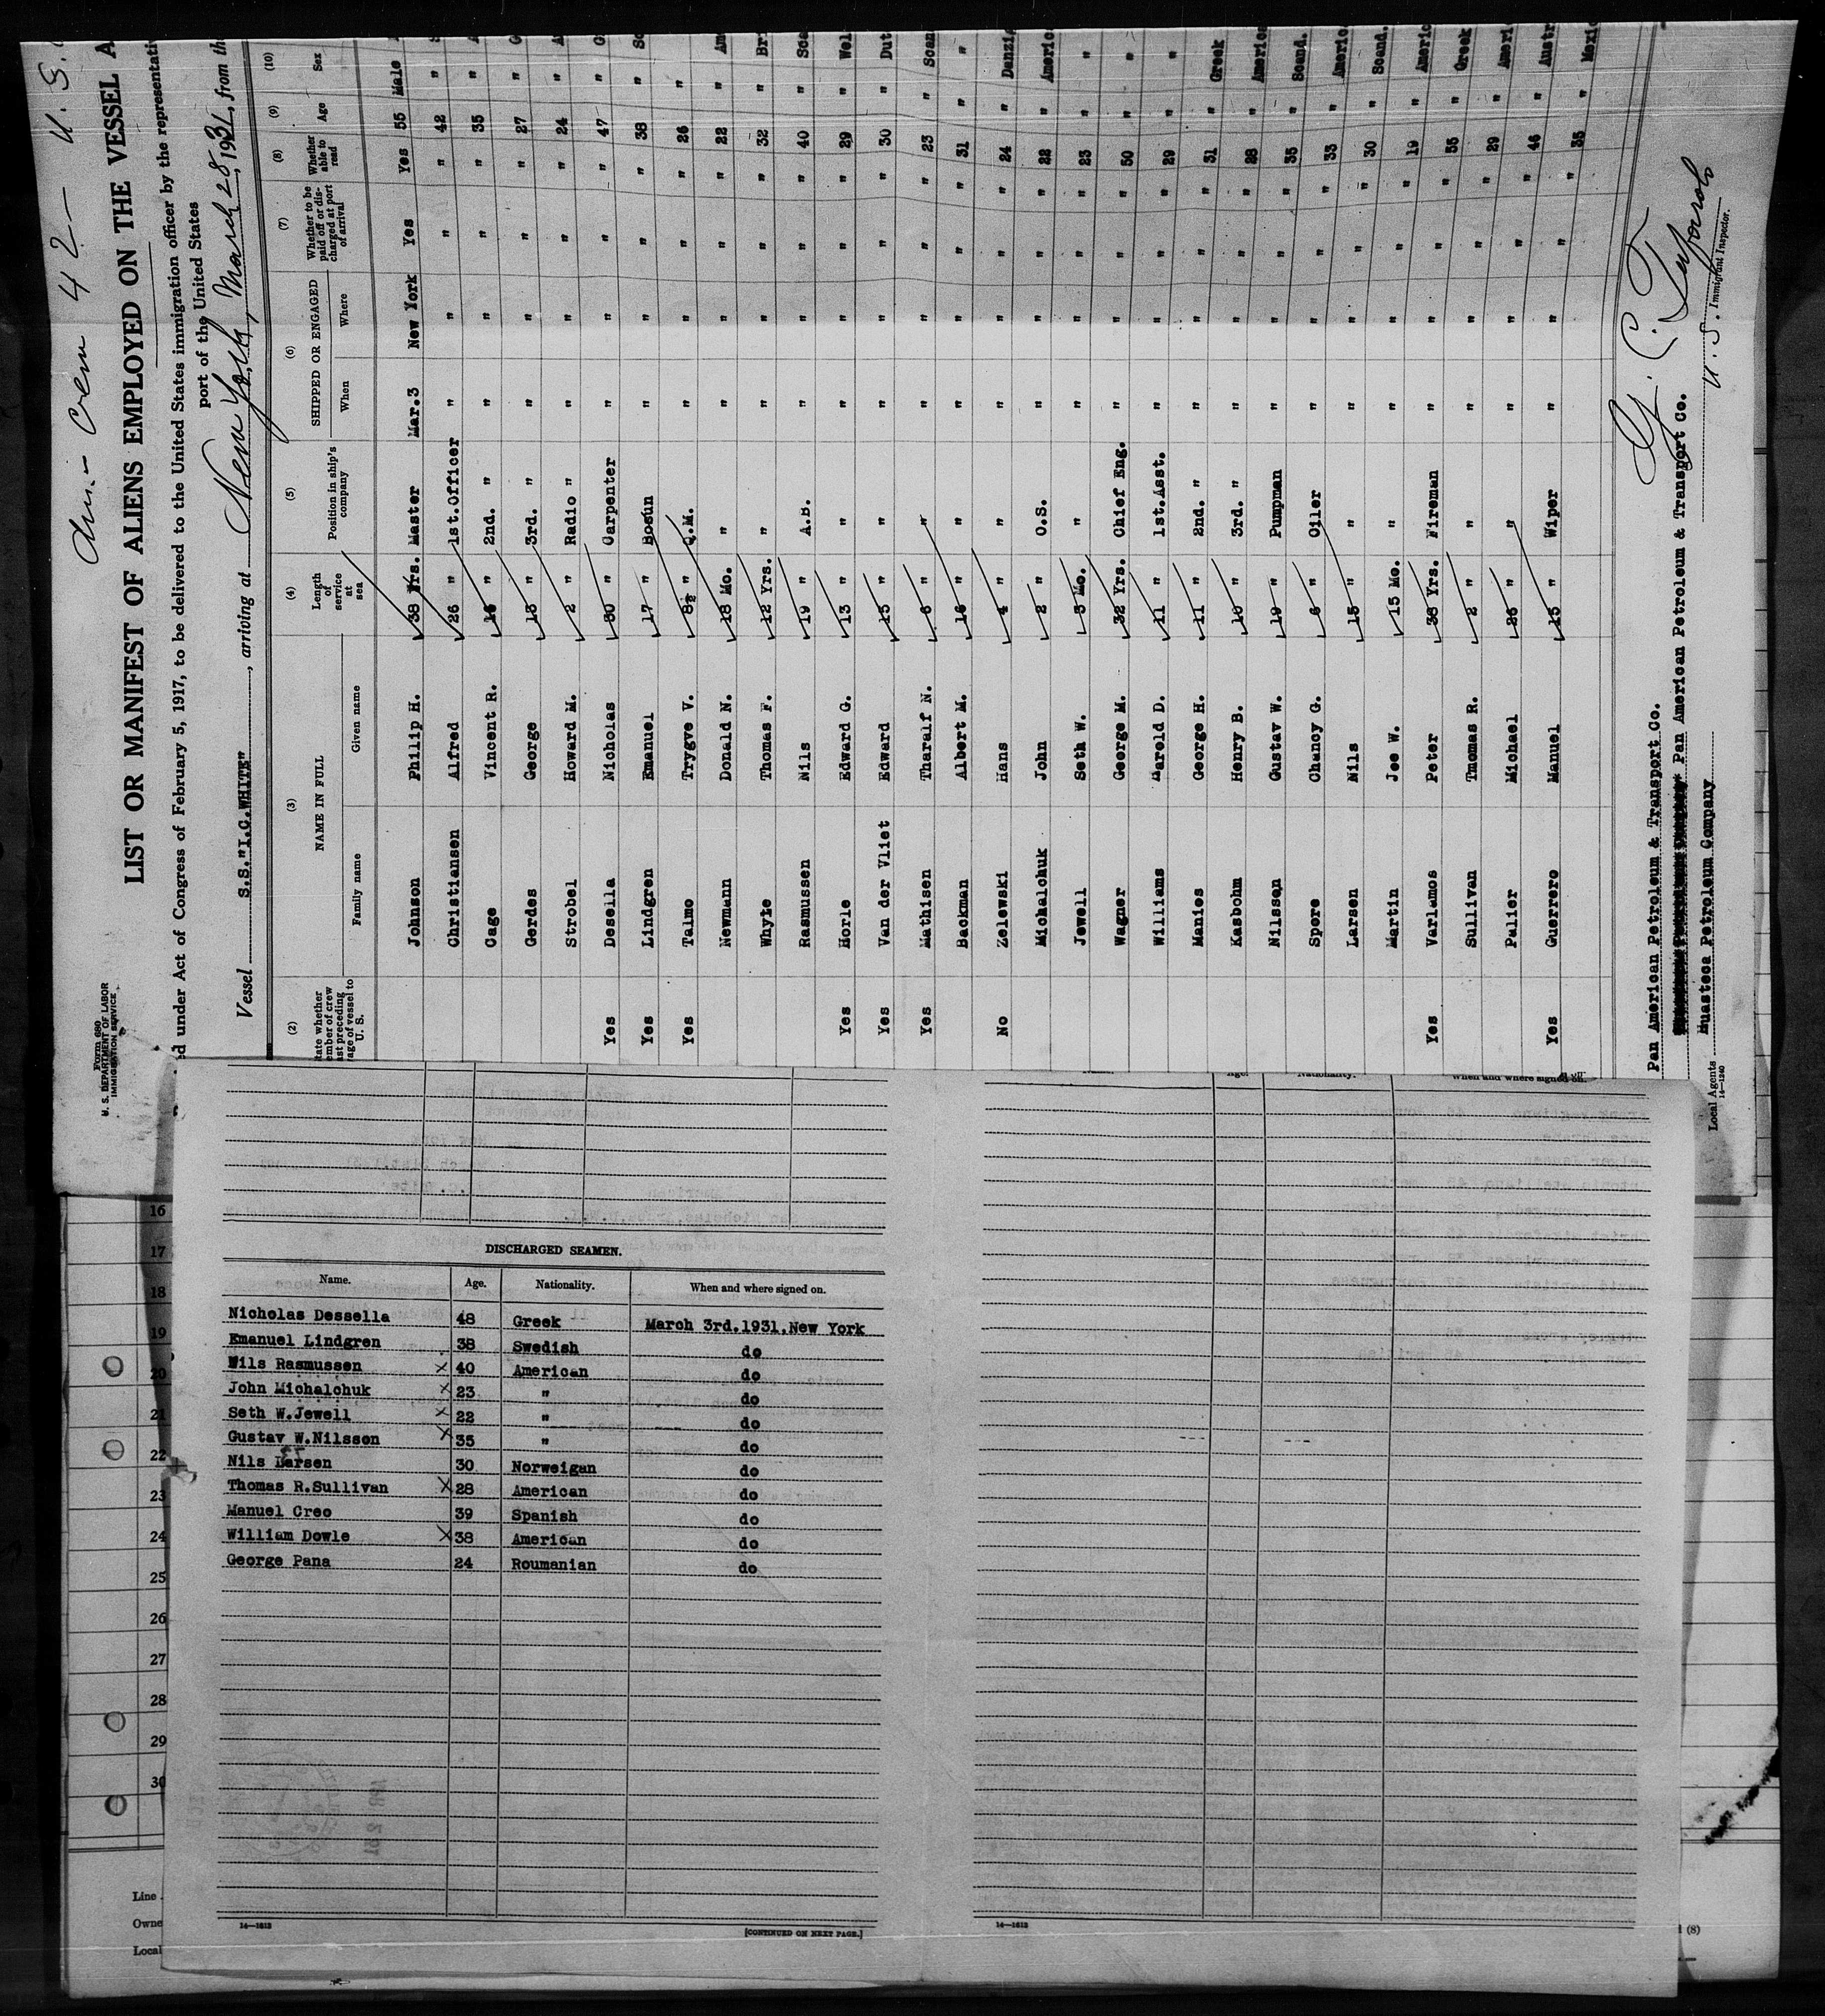 Am - Crew 42 — U.S.
Form 680
U. S. DEPARTMENT OF LABOR
IMMIGRATION SERVICE
LIST OR MANIFEST OF ALIENS EMPLOYED ON THE VESSEL A
ed under Act of Congress of February 5, 1917, to be delivered to the United States immigration officer by the representati
port of the United States
Vessel S.S."I.C.WHITE", arriving at New York, March 28, 1931, from th
(2) (3) (4) (5) (6) (7) (8) (9) (10)
NAME IN FULL
Family name Given name
Length of service at sea
Position in ship's company
SHIPPED OR ENGAGED
When Where
Whether to be paid off or discharged at port of arrival
Whether able to read
Age
Sex
Johnson Philip H. 38 Yrs. Master Mar.3 New York Yes Yes 55 Male
Christiansen Alfred 26 " 1st.Officer " " " " 42 "
Cage Vincent R. 16 " 2nd. " " " " " 35 "
Gerdes George 13 " 3rd. " " " " " 27 "
Strobel Howard M. 2 " Radio " " " " " 24 "
Yes Desella Nicholas 30 " Carpenter " " " " 47 "
Yes Lindgren Emanuel 17 " Bosun " " " " 38 "
Yes Talmo Trygve V. 8½ " Q.M. " " " " 26 "
Newmann Donald N. 18 Mo. " " " " " 22 " Am
Whyte Thomas F. 12 Yrs. " " " " " 32 " Br
Rasmussen Nils 19 " A.B. " " " " 40 " Sca
Yes Horle Edward G. 13 " " " " " " 29 " Wel
Yes Van der Vliet Edward 13 " " " " " " 30 " Dut
Yes Mathisen Tharalf N. 6 " " " " " " 23 " Scan
Backman Albert M. 16 " " " " " " 31 " "
No Zelewski Hans 4 " " " " " " 24 " Danzig
Michalchuk John 2 " O.S. " " " " 22 " Americ
Jewell Seth W. 3 Mo. " " " " " 23 " "
Wagner George M. 32 Yrs. Chief Eng. " " " " 50 " "
Williams Harold D. 11 " 1st.Asst. " " " " 29 " "
Manies George H. 11 " 2nd. " " " " " 31 " Greek
Kasbohm Henry B. 10 " 3rd. " " " " " 28 " America
Nilsson Gustav W. 19 " Pumpman " " " " 35 " Scand.
Spore Chancy G. 6 " Oiler " " " " 33 " Americ
Larsen Nils 15 " " " " " " 30 " Scand.
Martin Joe W. 15 Mo. " " " " " 19 " Americ
Yes Varlamos Peter 38 Yrs. Fireman " " " " 55 " Greek
Sullivan Thomas R. 2 " " " " " " 29 " Ameri
Palier Michael 26 " " " " " " 46 " Austr
Yes Guerrero Manuel 15 " Wiper " " " " 35 " Mexic
Pan American Petroleum & Transport Co.
Pan American Petroleum & Transport Co.
Local Agents Huasteca Petroleum Company
14—1240
U. S. Immigrant Inspector.
When and where signed on.
16
17
18
19
20
21
22
23
24
25
26
27
28
29
30
DISCHARGED SEAMEN.
Name. Age. Nationality. When and where signed on.
Nicholas Dessella 48 Greek March 3rd.1931.New York
Emanuel Lindgren 38 Swedish do
Nils Rasmussen x 40 American do
John Michalchuk x 23 " do
Seth W.Jewell x 22 " do
Gustav W.Nilsson x 35 " do
Nils Larsen 30 Norweigan do
Thomas R.Sullivan x 28 American do
Manuel Creo 39 Spanish do
William Dowle x 38 American do
George Pana 24 Roumanian do
14—1613
[CONTINUED ON NEXT PAGE.]
14—1613
Line
Owne
Local
(8)